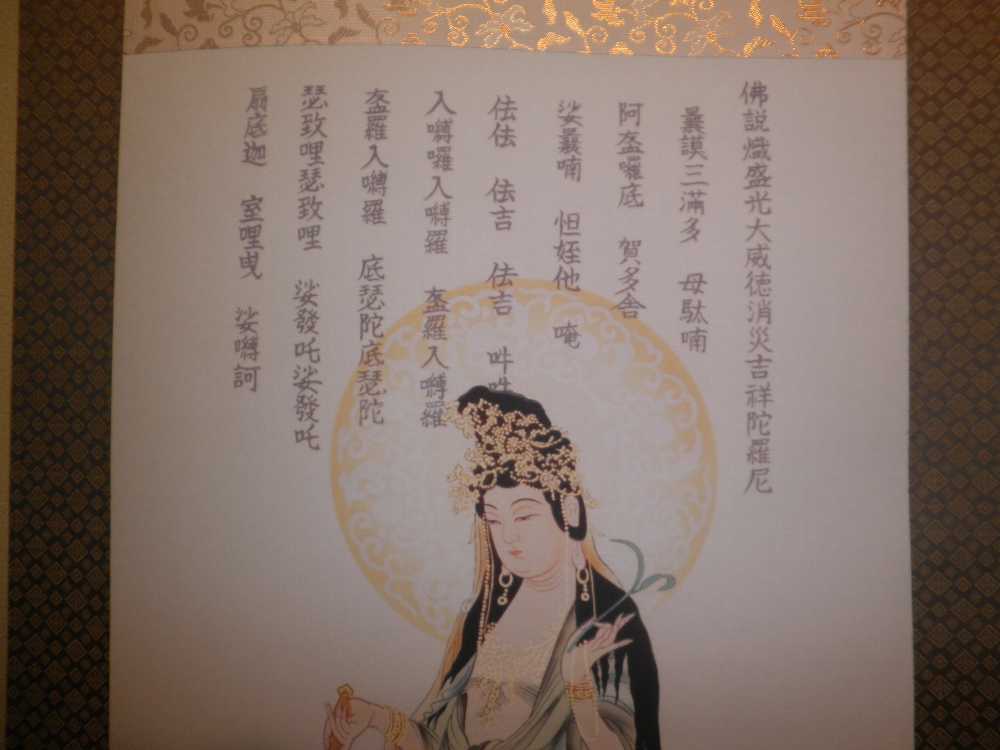 佛説熾盛光大威徳消災吉祥陀羅尼
曩謨三滿多 母駄喃
阿盋囉底 賀多舎
娑曩喃 怛姪他 唵
佉佉 佉吉 佉吉 吽吽
入嚩囉入嚩羅 盋羅入嚩羅
盋羅入嚩羅 底瑟陀底瑟陀
瑟致哩瑟致哩 娑發吒娑發吒
扇底迦 室哩曳 娑嚩訶